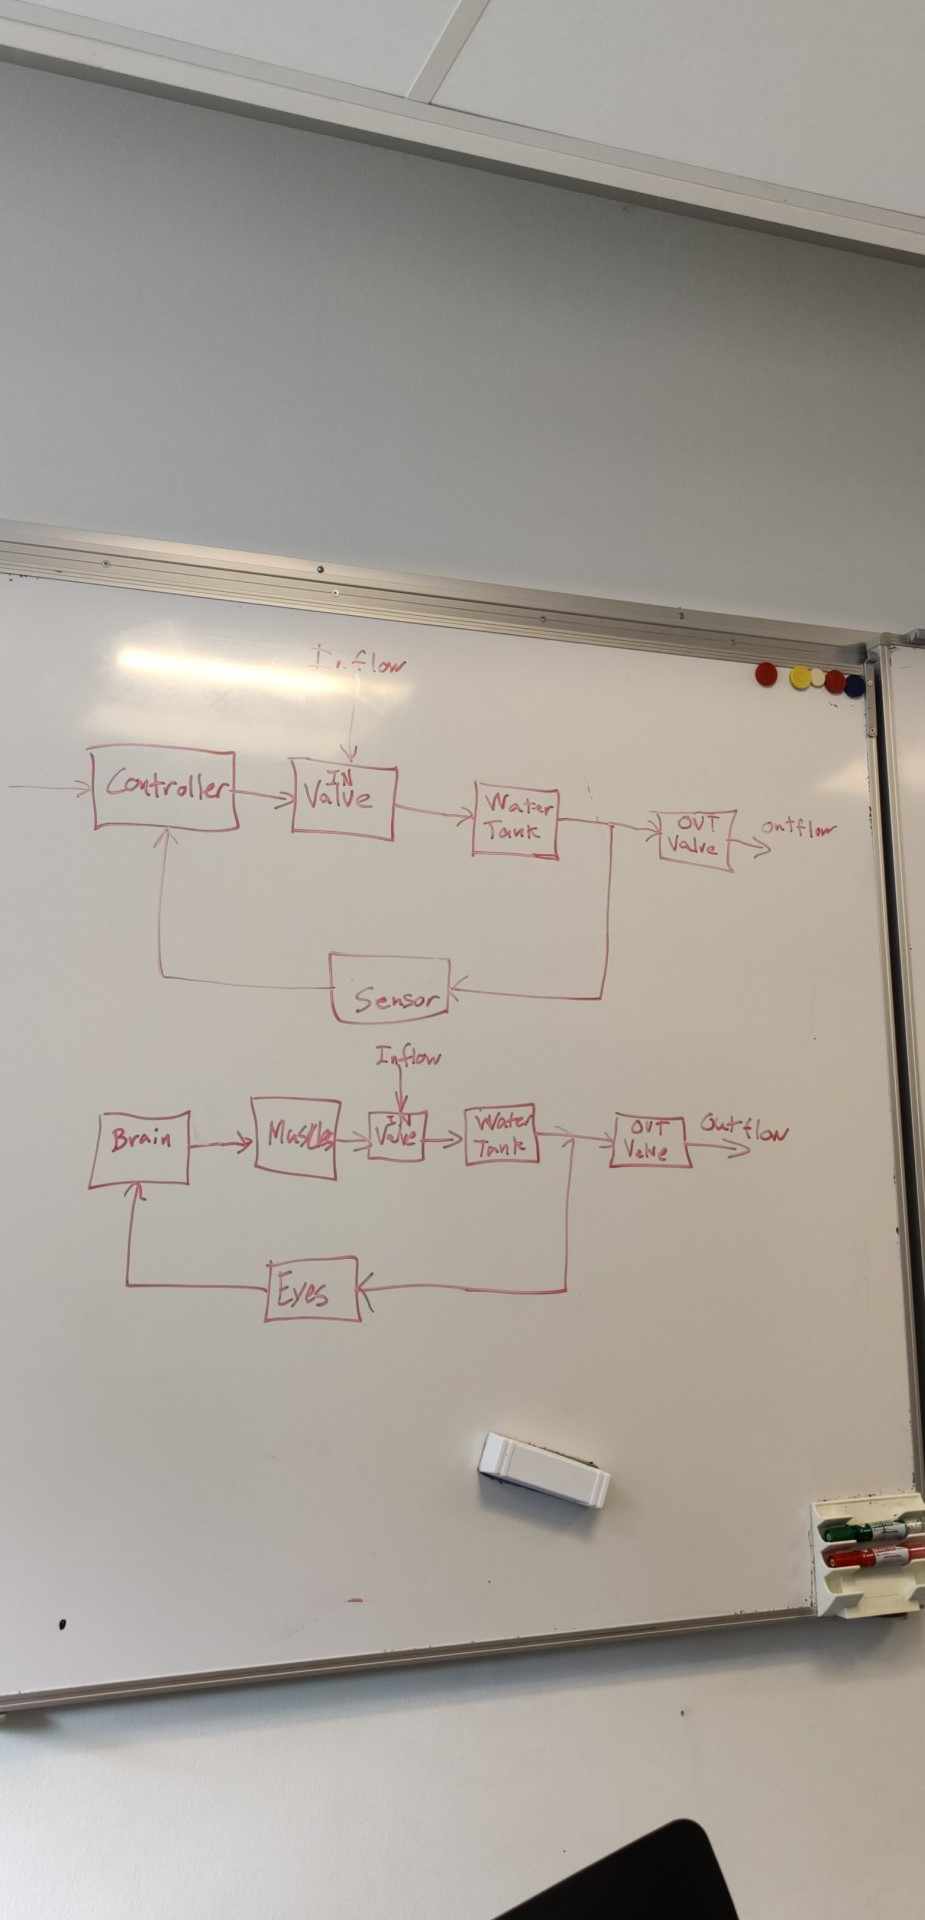 Inflow
Controller
IN
Valve
Water
Tank
OUT
Valve
Outflow
Sensor
Inflow
Brain
Muscles
IN
Valve
Water
Tank
OUT
Valve
Outflow
Eyes